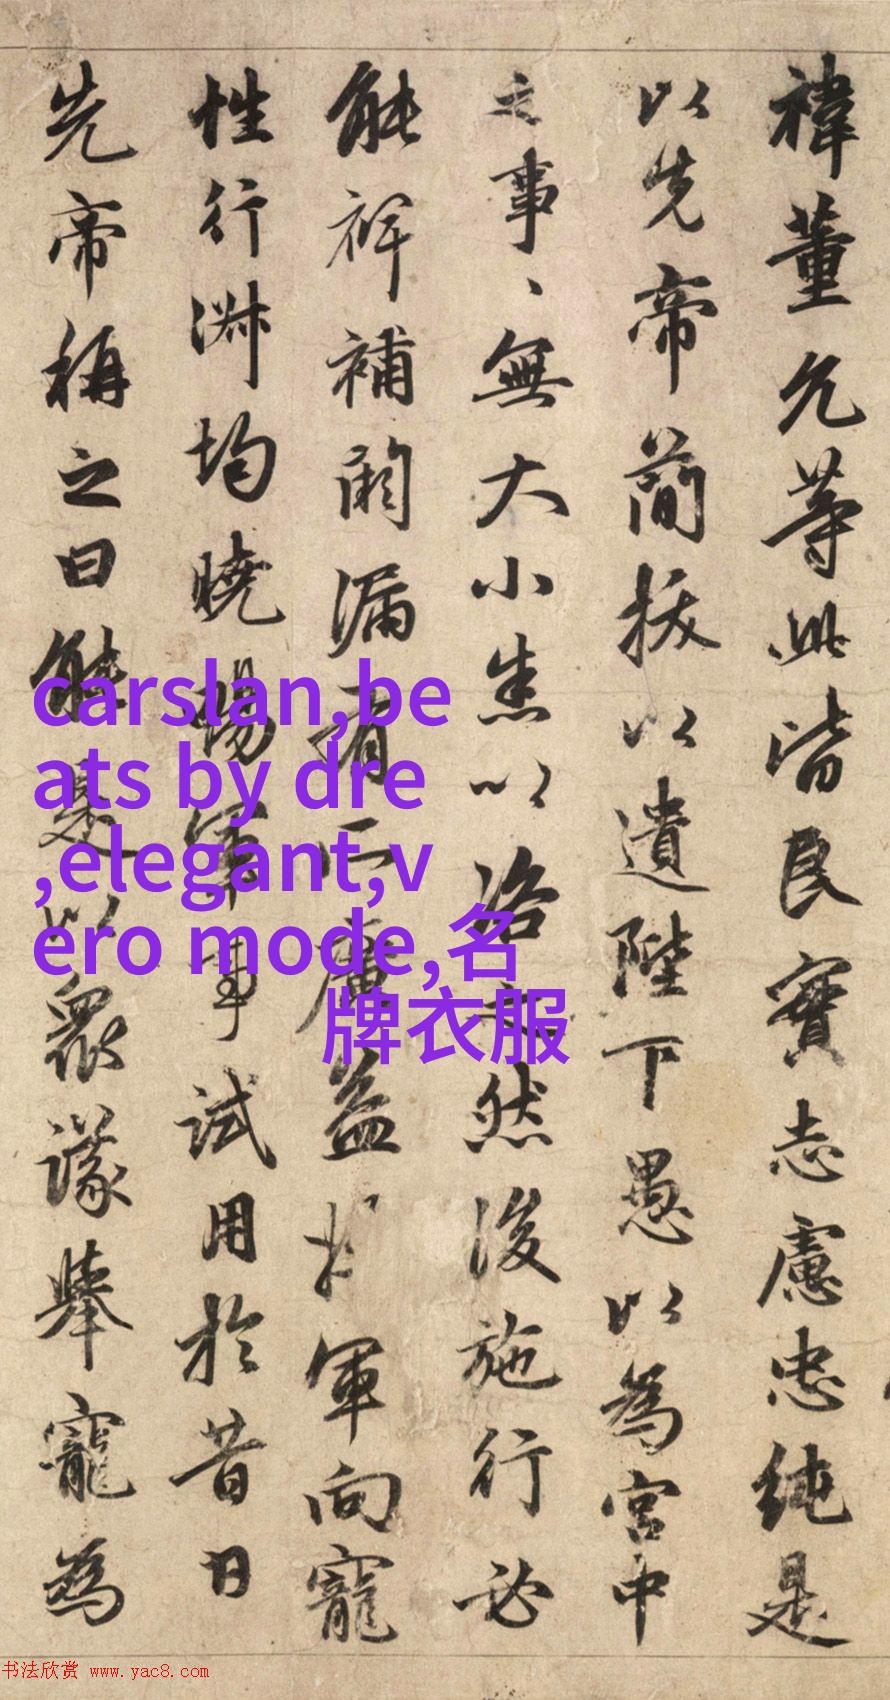 禕董允等此皆良實志慮忠純是
以先帝簡拔以遺陛下愚以為宮中
之事、無大小悉以諮之然後施行必
能裨補闕漏有所廣益將軍向寵
性行淑均曉暢軍事試用於昔日
先帝稱之曰能是以衆議舉寵為
carslan,be
ats by dre
,elegant,v
ero mode,名
牌衣服
书法欣赏 www.yac8.com